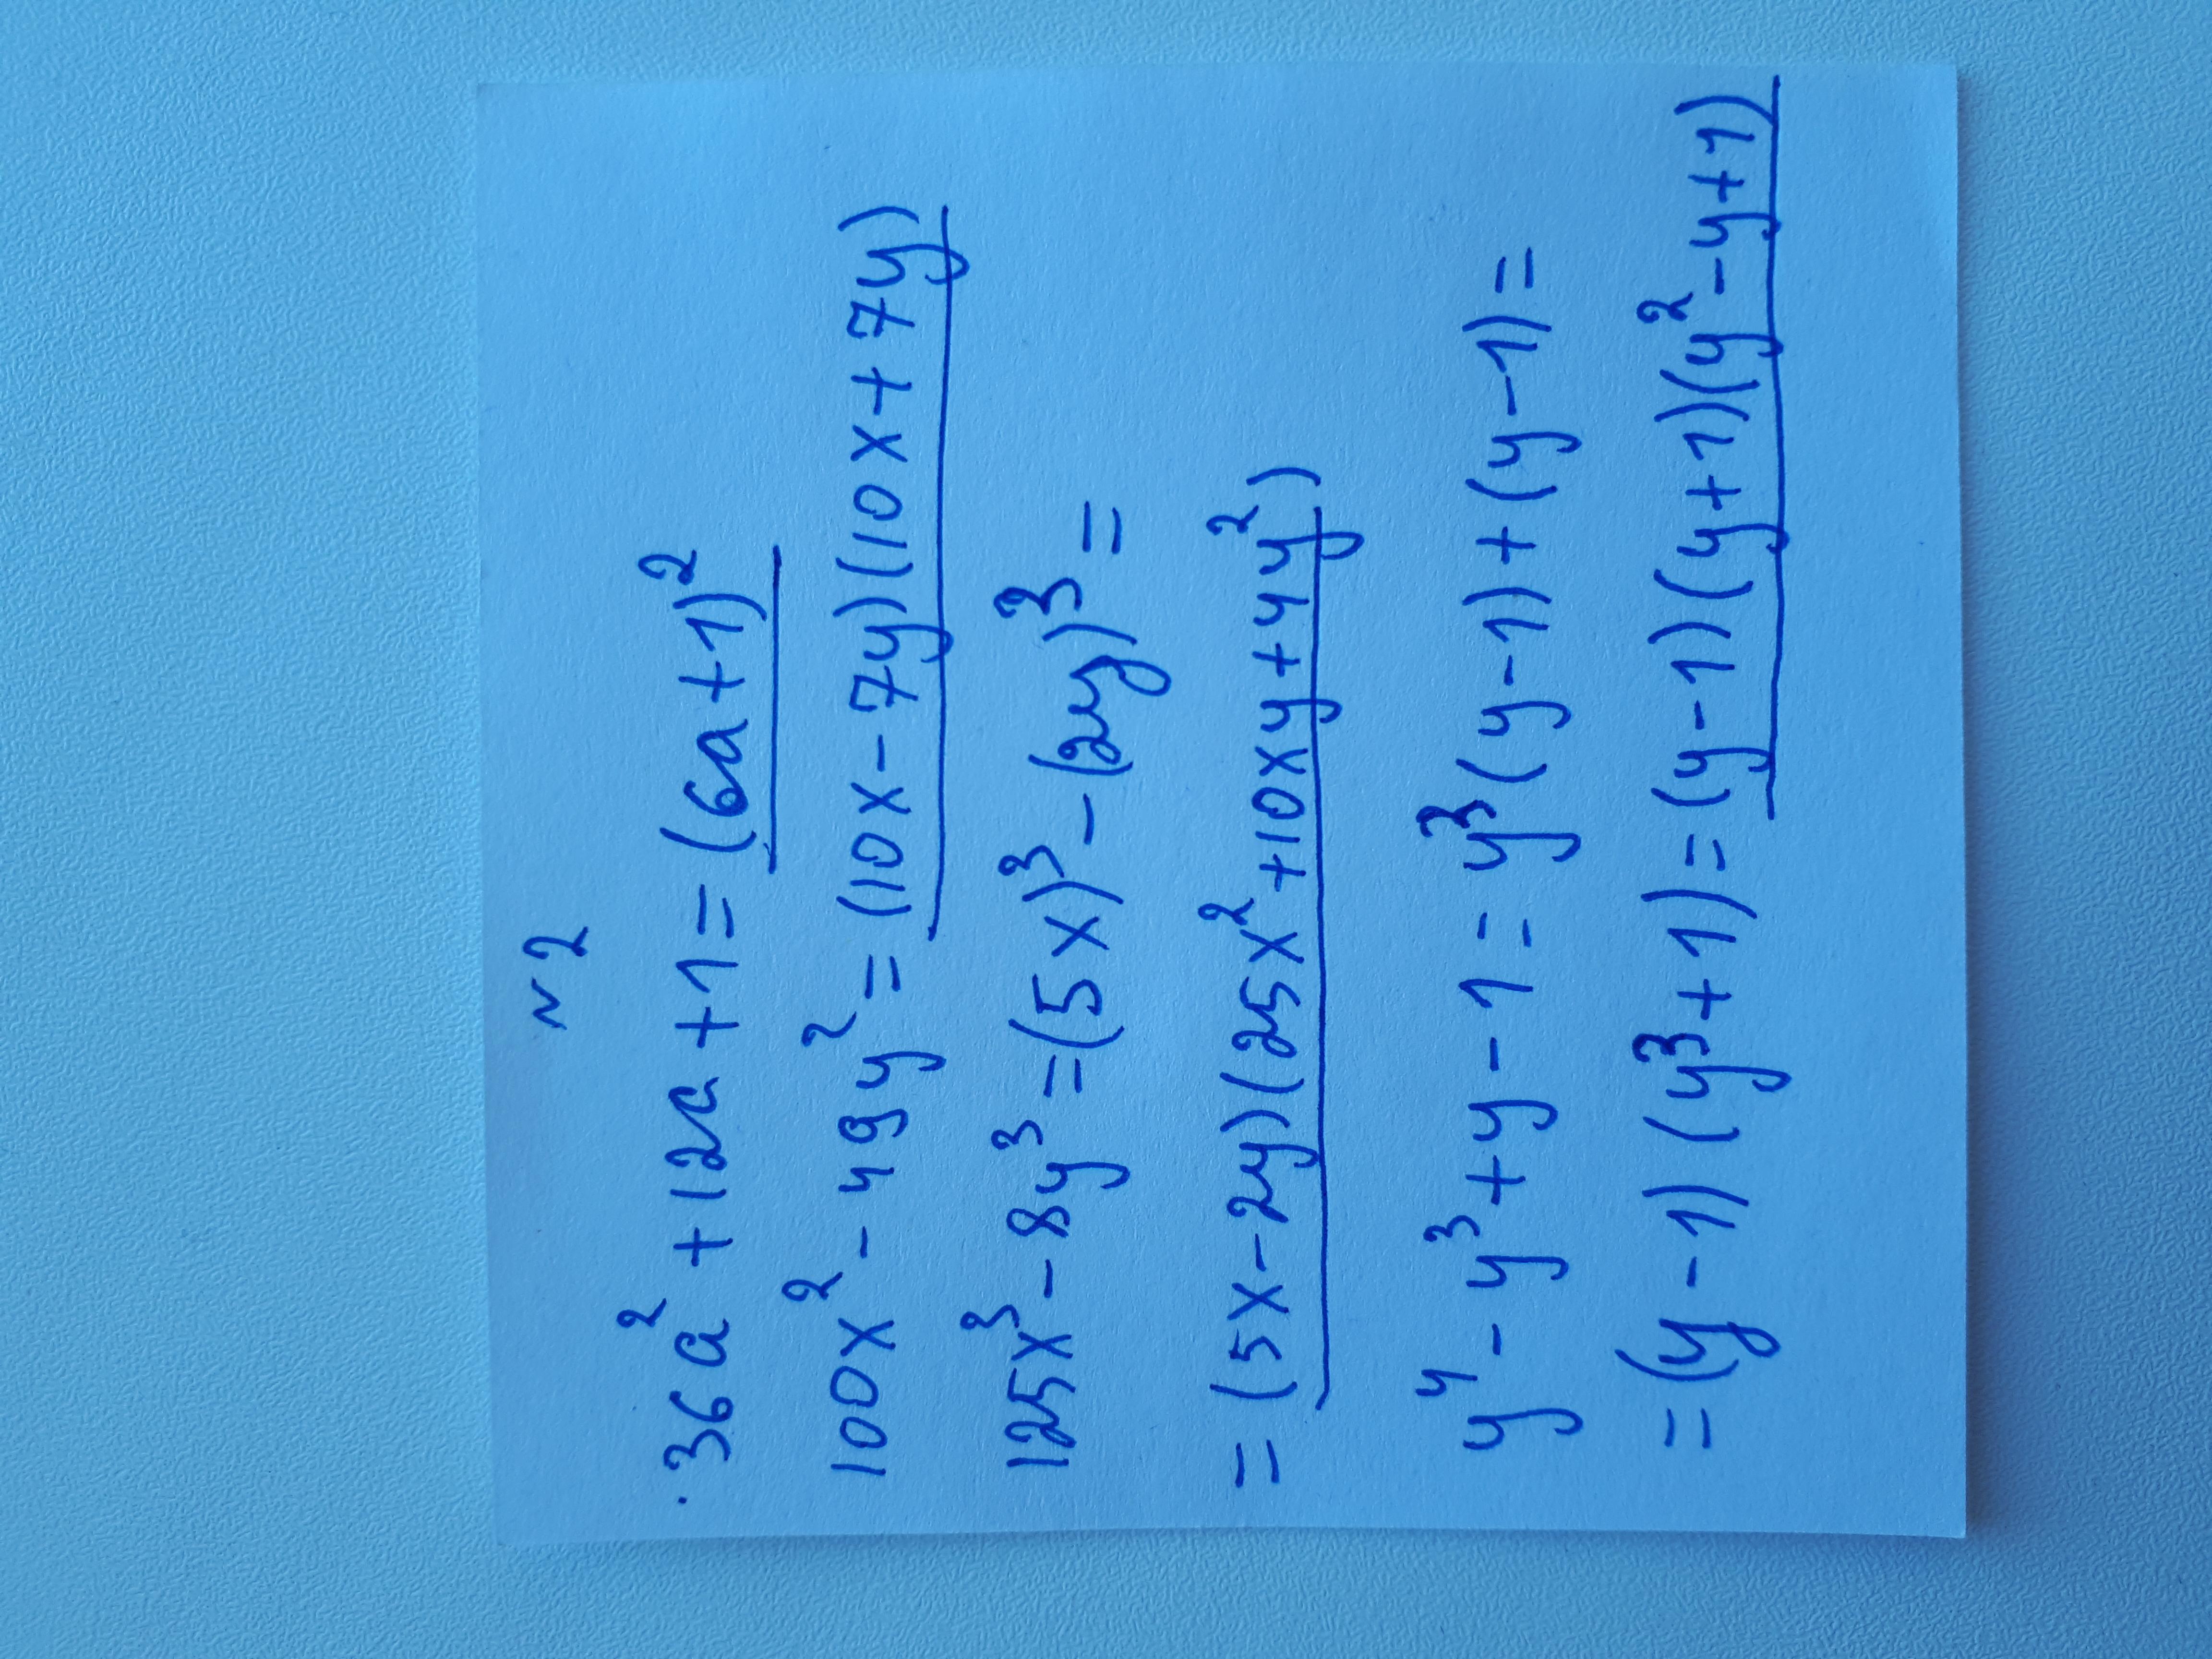 N 2
36a² + 12a + 1 = (6a + 1)²
100x² - 49y² = (10x - 7y)(10x + 7y)
125x³ - 8y³ = (5x)³ - (2y)³ =
= (5x - 2y)(25x² + 10xy + 4y²)
y⁴ - y³ + y - 1 = y³(y - 1) + (y - 1) =
= (y - 1)(y³ + 1) = (y - 1)(y + 1)(y² - y + 1)